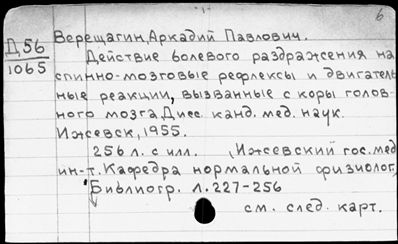 6
Верещагин, Аркадий Павлович.
Д 56
1065
Действие болевого раздражения на
спинно-мозговые рефлексы и двигатель
ные реакции, вызванные с коры голов-
ного мозга. Дисс. канд. мед. наук.
Ижевск, 1955.
256 л. с илл. (Ижевский гос. мед.
ин-т. Кафедра нормальной физиолог.)
Библиогр. л. 227-256
см. след. карт.